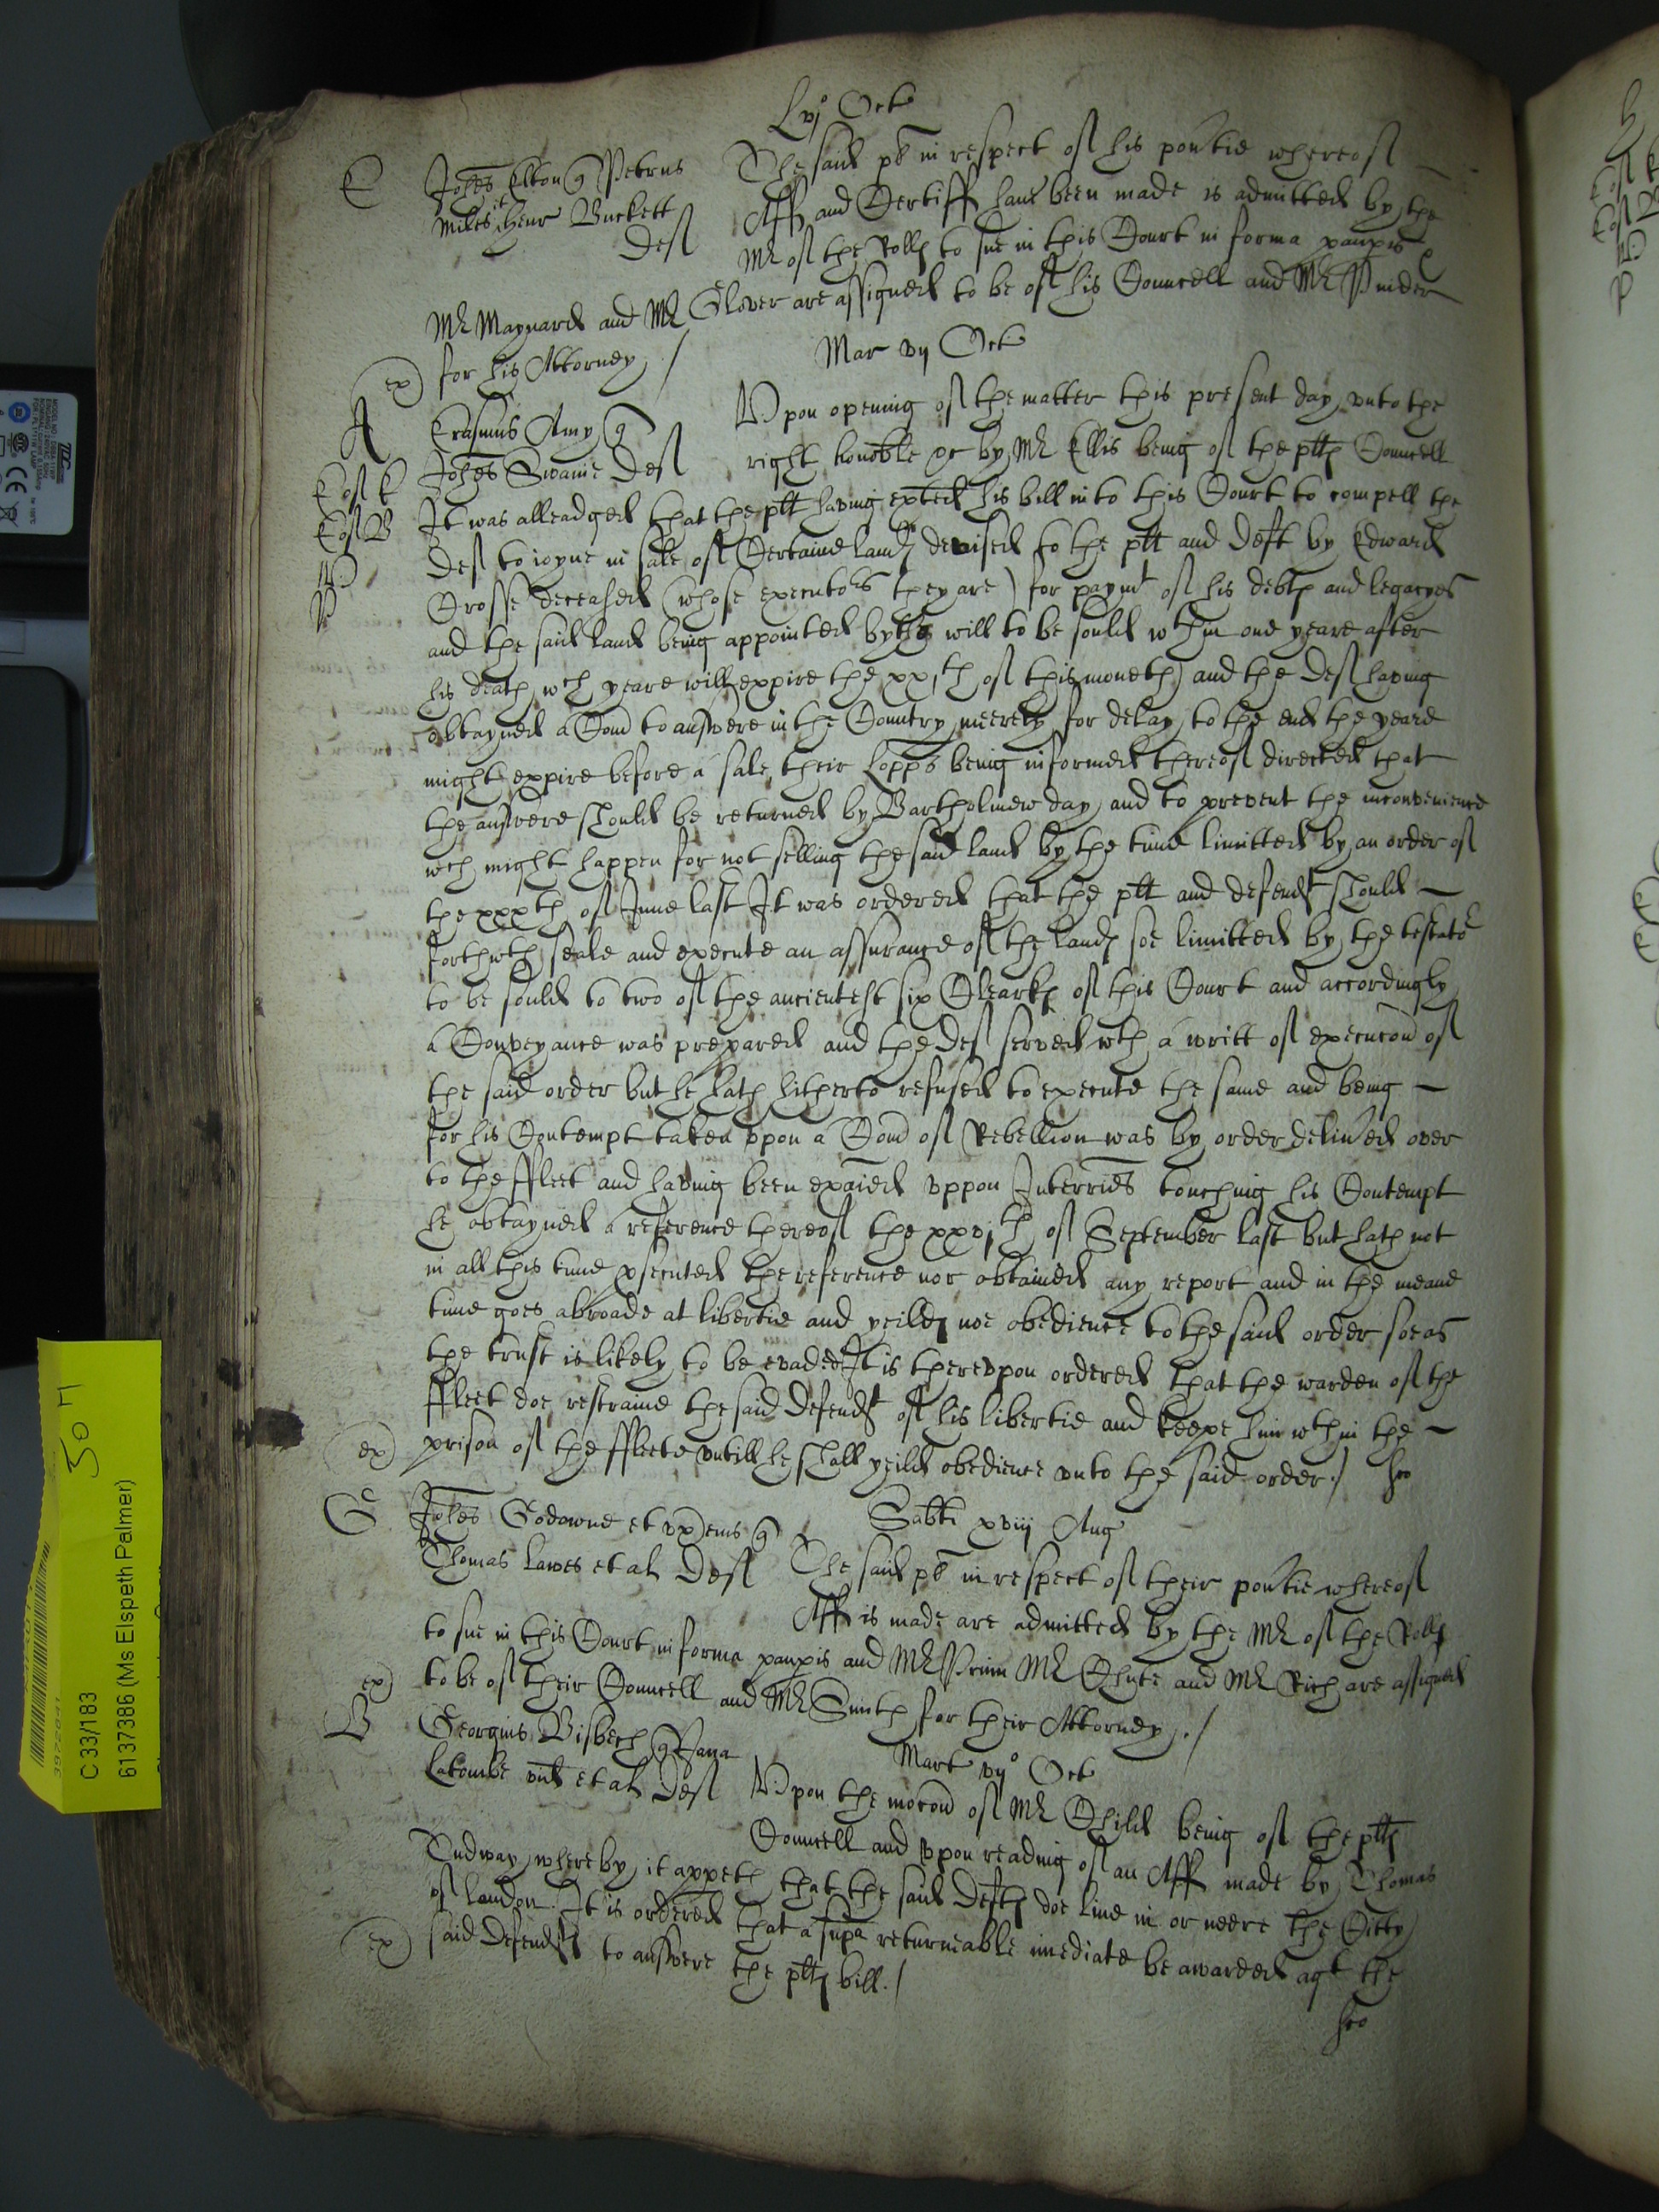 Lvj° Oct
E Johes Elton q Petrus
Miles et Henr Buckett
Def
The said pl in respect of his povtie whereof
Aff and Certiff have been made is admitted by the
Mr of the Rolls to sue in this Court in forma paupis
Mr Maynard and Mr Glover are assigned to be of his Councell and Mr Pinder
ex) for his Attorney /
Mar vij Oct
A Erasmus Amy q
Johes Swaine Def
Vpon opening of the matter this present day vnto the
right honoble &c by Mr Ellis being of the plts Councell
It was alleadged that the plt having exted his bill into this Court to compell the
Def to ioyne in sale of Certaine lands devised to the plt and Deft by Edward
Crosse deceased (whose executors they are) for paymt of his debts and legacyes
and the said land being appointed by the will to be sould wthin one yeare after
his death wch yeare will expire the xxjth of this moneth and the Def having
obtayned a Com to answere in the Country meerely for delay to the end the yeare
might expire before a sale their Lopps being informed thereof directed that
the answere should be returned by Bartholmew day and to prevent the inconvenience
wch might happen for not selling the said land by the time limitted by an order of
the xxxth of June last It was ordered that the plt and defendt should
forthwth seale and execute an assurance of the lands soe limitted by the testator
to be sould to two of the ancientest six Clearks of this Court and accordingly
a Conveyance was prepared and the Def served wth a writt of execucon of
the said order but he hath hitherto refused to execute the same and being
for his Contempt taken vpon a Com of Rebellion was by order delivered over
to the ffleet and having been exaied vppon Interries touching his Contempt
he obtayned a reference thereof the xxvjth of September last but hath not
in all this time psecuted the reference nor obtained any report and in the meane
time goes abroade at libertie and yeilds noe obedience to the said order soe as
the trust is likely to be evaded It is therevpon ordered that the warden of the
ffleet doe restraine the said Defendt of his libertie and keepe him wthin the
ex) prison of the ffleete vntill he shall yeild obedience vnto the said order /
G Johes Godowne et vx ems q
Thomas Lawes et al Def
Sabti xviij Aug
The said pl in respect of their povtie whereof
Aff is made are admitted by the Mr of the Rolls
to sue in this Court in forma paupis and Mr Prinn Mr Chute and Mr Rich are assigned
ex) to be of their Councell and Mr Smith for their Attorney . /
B Georgius Bisbech q Jana
Latombe vid et al Def
Mart vij° Oct
Vpon the mocon of Mr Child being of the plts
Councell and vpon reading of an Aff made by Thomas
Tudway whereby it appeth that the said Defts doe live in or neere the Citty
of London It is ordered that a supa returneable imediate be awarded agt the
ex) said Defendts to answere the plts bill. /
C 33/183
6137386 (Ms Elspeth Palmer)